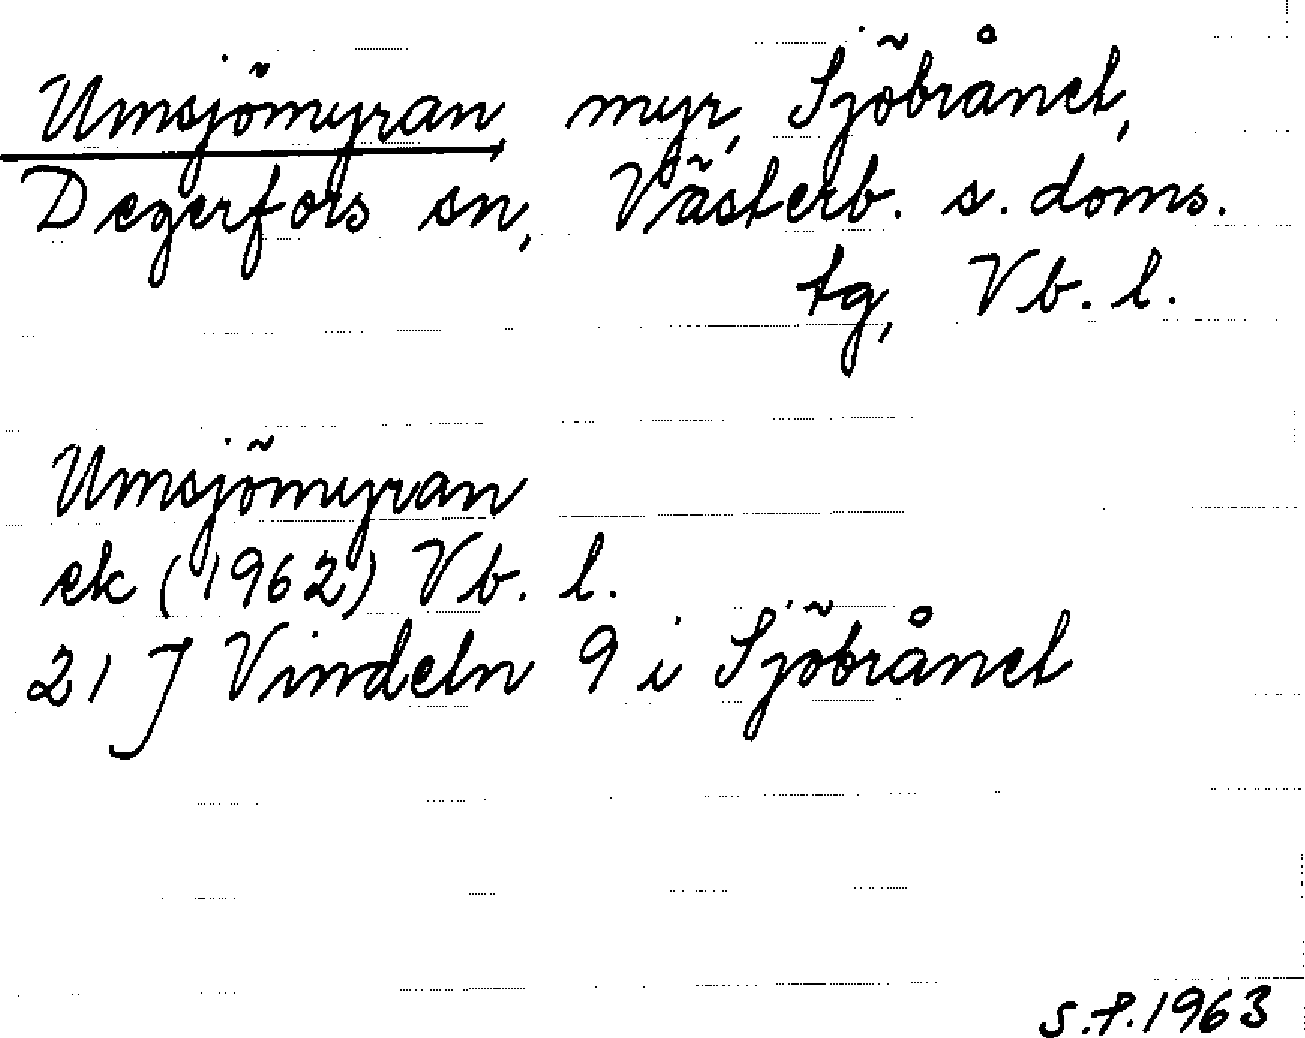 Umsjömyran, myr, Sjöbrånet,
Degerfors sn, Västerb. s. doms.
tg, Vb. l.
Umsjömyran
ek (1962) Vb. l.
21 J Vindeln 9 i Sjöbrånet
S.F.1963